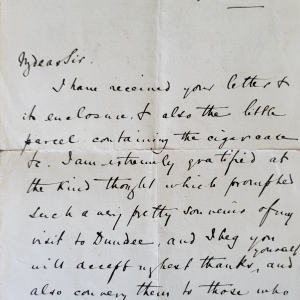 My dear Sir.
I have received your letter &
its enclosure, & also the little
parcel containing the cigar case
&c. I am extremely gratified at
the kind thought which prompted
such a very pretty souvenir of my
visit to Dundee, and I beg you
yourself
will accept my best thanks, and
also convey them to those who